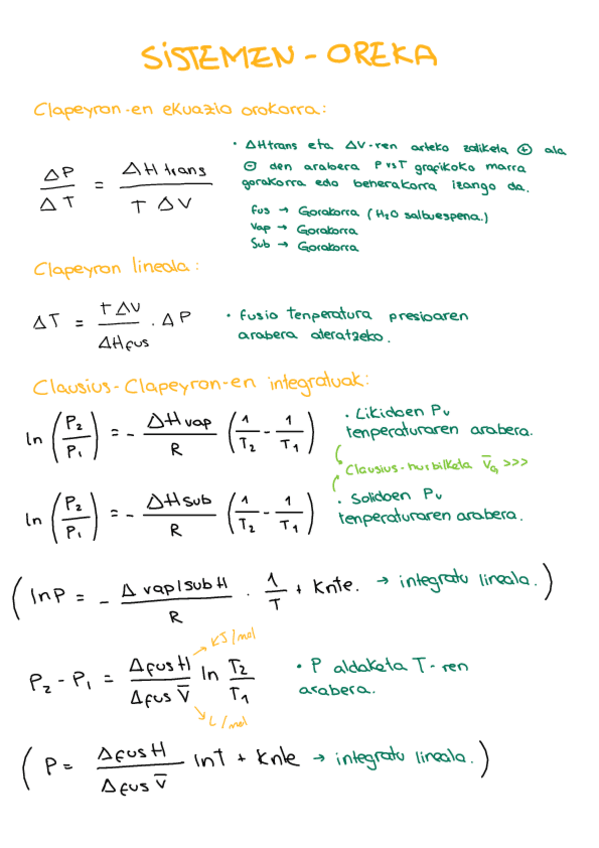 SISTEMEN - OREKA
Clapeyron-en ekuazio orokorra:
ΔP / ΔT = ΔH trans / T ΔV
• ΔHtrans eta ΔV-ren arteko zatiketa ⊕ ala
⊖ den arabera P vs T grafikoko marra
gorakorra edo beherakorra izango da.
Fus → Gorakorra (H₂O salbuespena.)
Vap → Gorakorra
Sub → Gorakorra
Clapeyron lineala:
ΔT = T ΔV / ΔHfus · ΔP
• Fusio tenperatura presioaren
arabera aleratzeko.
Clausius-Clapeyron-en integratuak:
ln (P₂/P₁) = - ΔHvap / R (1/T₂ - 1/T₁)
• Likidoen Pv
tenperaturaren arabera.
Clausius-hurbilketa V̄g >>>
ln (P₂/P₁) = - ΔHsub / R (1/T₂ - 1/T₁)
• Solidoen Pv
tenperaturaren arabera.
(lnP = - Δ vap/sub H / R · 1/T + Knte. → integratu lineala.)
P₂ - P₁ = Δfus H / Δfus V̄ ln T₂/T₁
KJ/mol
L/mol
• P aldaketa T-ren
arabera.
(P = Δfus H / Δfus V̄ lnT + Knte → integratu lineala.)